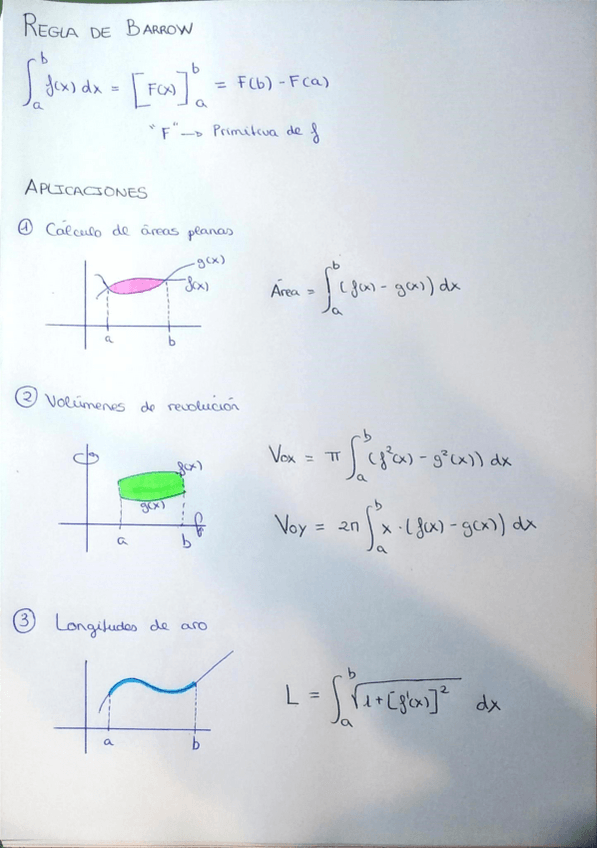 REGLA DE BARROW
∫_a^b f(x) dx = [F(x)]_a^b = F(b) - F(a)
"F" → Primitiva de f
APLICACIONES
① Cálculo de áreas planas
g(x)
f(x)
a b
Área = ∫_a^b (f(x) - g(x)) dx
② Volúmenes de revolución
f(x)
g(x)
a b
Vox = π ∫_a^b (f²(x) - g²(x)) dx
Voy = 2π ∫_a^b x · (f(x) - g(x)) dx
③ Longitudes de aro
a b
L = ∫_a^b √(1+[f'(x)]²) dx